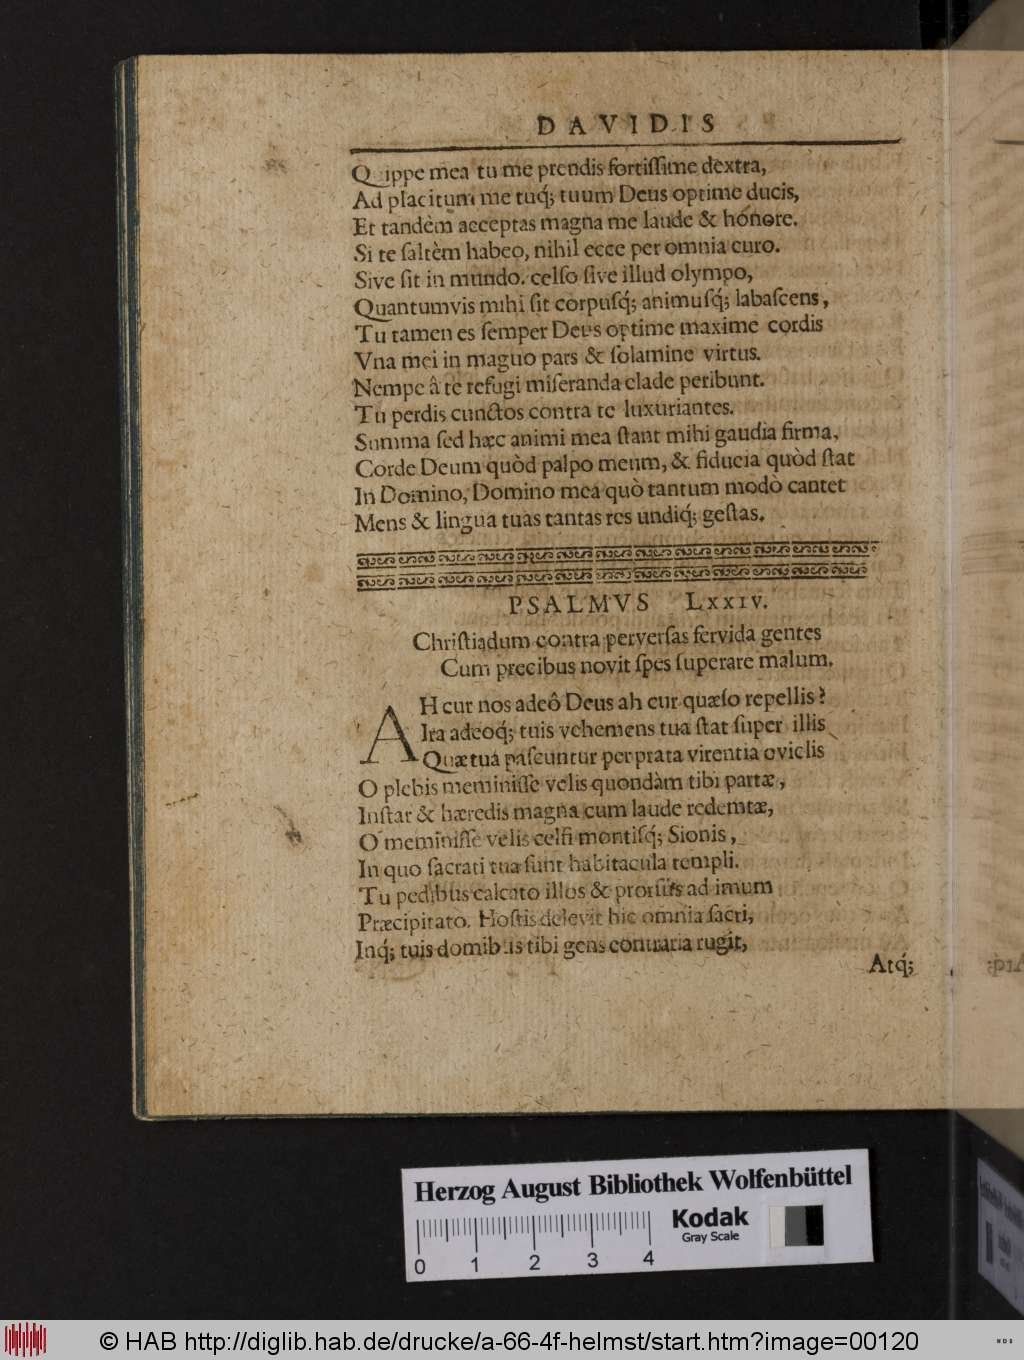 DAVIDIS
Quippe mea tu me prendis fortiſſime dextra,
Ad placitum me tuq́; tuum Deus optime ducis,
Et tandèm acceptas magna me laude & honore.
Si te ſaltèm habeo, nihil ecce per omnia curo.
Sive ſit in mundo. celſo ſive illud olympo,
Quantumvis mihi ſit corpuſq́; animuſq́; labaſcens,
Tu tamen es ſemper Deus optime maxime cordis
Vna mei in maguo pars & ſolamine virtus.
Nempe â te refugi miſeranda clade peribunt.
Tu perdis cunctos contra te luxuriantes.
Summa ſed hæc animi mea ſtant mihi gaudia firma,
Corde Deum quòd palpo meum, & fiducia quòd ſtat
In Domino, Domino mea quò tantum modò cantet
Mens & lingua tuas tantas res undiq́; geſtas.
PSALMVS LXXIV.
Chriſtiadum contra perverſas fervida gentes
Cum precibus novit ſpes ſuperare malum.
AH cur nos adeô Deus ah cur quæſo repellis?
Ira adeoq́; tuis vehemens tua ſtat ſuper illis
Quæ tua paſcuntur per prata virentia oviclis
O plebis meminiſſe velis quondàm tibi partæ,
Inſtar & hæredis magna cum laude redemtæ,
O meminiſſe velis celſi montiſq́; Sionis,
In quo ſacrati tua ſunt habitacula templi.
Tu pedibus calcato illos & prorſus ad imum
Præcipitato. Hoſtis delevit hic omnia ſacri,
Inq́; tuis domibus tibi gens contraria rugit,
Atq́;
Herzog August Bibliothek Wolfenbüttel
Kodak
Gray Scale
0 1 2 3 4
© HAB http://diglib.hab.de/drucke/a-66-4f-helmst/start.htm?image=00120